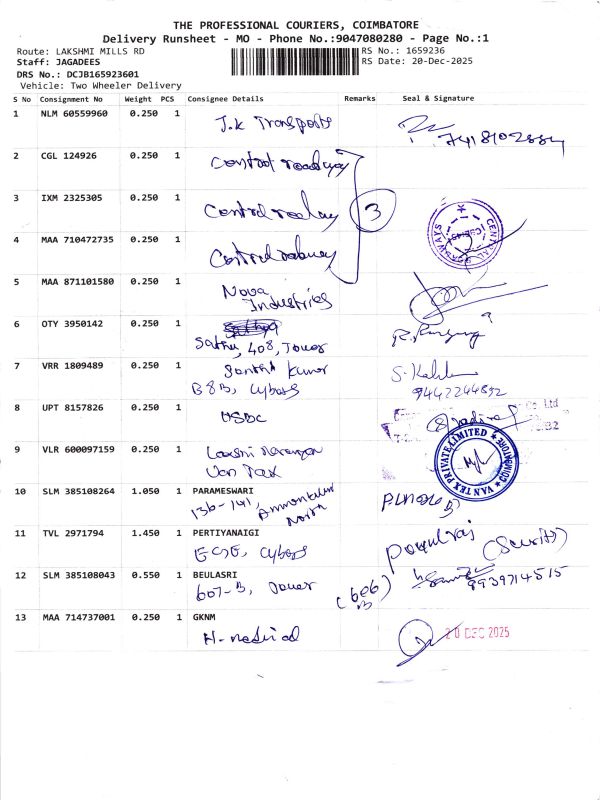 THE PROFESSIONAL COURIERS, COIMBATORE
Delivery Runsheet - MO - Phone No.:9047080280 - Page No.:1
Route: LAKSHMI MILLS RD RS No.: 1659236
Staff: JAGADEES RS Date: 20-Dec-2025
DRS No.: DCJB165923601
Vehicle: Two Wheeler Delivery
S No Consignment No Weight PCS Consignee Details Remarks Seal & Signature
1 NLM 60559960 0.250 1 J.K Transports
2 CGL 124926 0.250 1
3 IXM 2325305 0.250 1 3
4 MAA 710472735 0.250 1
CENTRAL ROADWAYS
5 MAA 871101580 0.250 1 Nova
Industries
6 OTY 3950142 0.250 1
Sathy, 408, Tower
7 VRR 1809489 0.250 1 Santhi Kumar
B8B, Cyborg
9442244832
8 UPT 8157826 0.250 1 HSBC
Co. Ltd
9 VLR 600097159 0.250 1 Laxmi Narayan
Van Tax
VANTEX PRIVATE LIMITED COIMBATORE
10 SLM 385108264 1.050 1 PARAMESWARI
136-141, Ammankulam
North
11 TVL 2971794 1.450 1 PERTIYANAIGI
Cyborg
Ponulraj (Scurity)
12 SLM 385108043 0.550 1 BEULASRI
607-B, Tower (606)
B
8939714515
13 MAA 714737001 0.250 1 GKNM
H-medical
20 DEC 2025